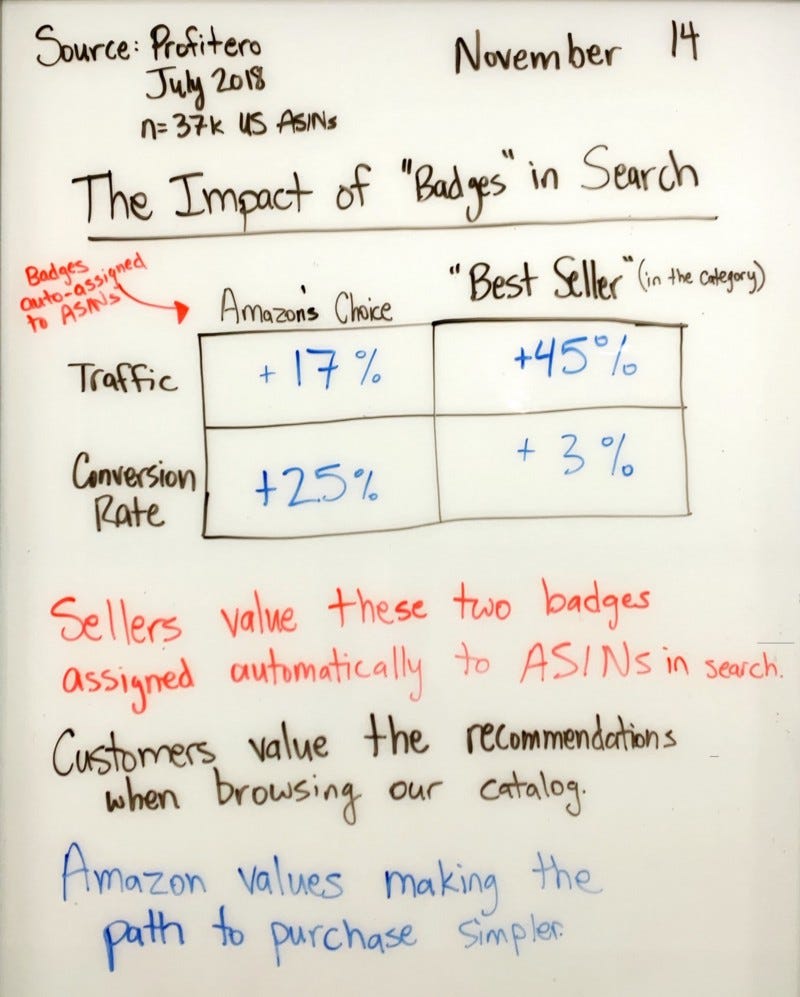 Source: Profitero
July 2018
n=37k US ASINs
November 14
The Impact of "Badges" in Search
Badges
auto-assigned
to ASINs
Amazon's Choice
"Best Seller" (in the category)
Traffic
+17%
+45%
Conversion
Rate
+25%
+3%
Sellers value these two badges
assigned automatically to ASINs in search.
Customers value the recommendations
when browsing our catalog.
Amazon values making the
path to purchase simpler.